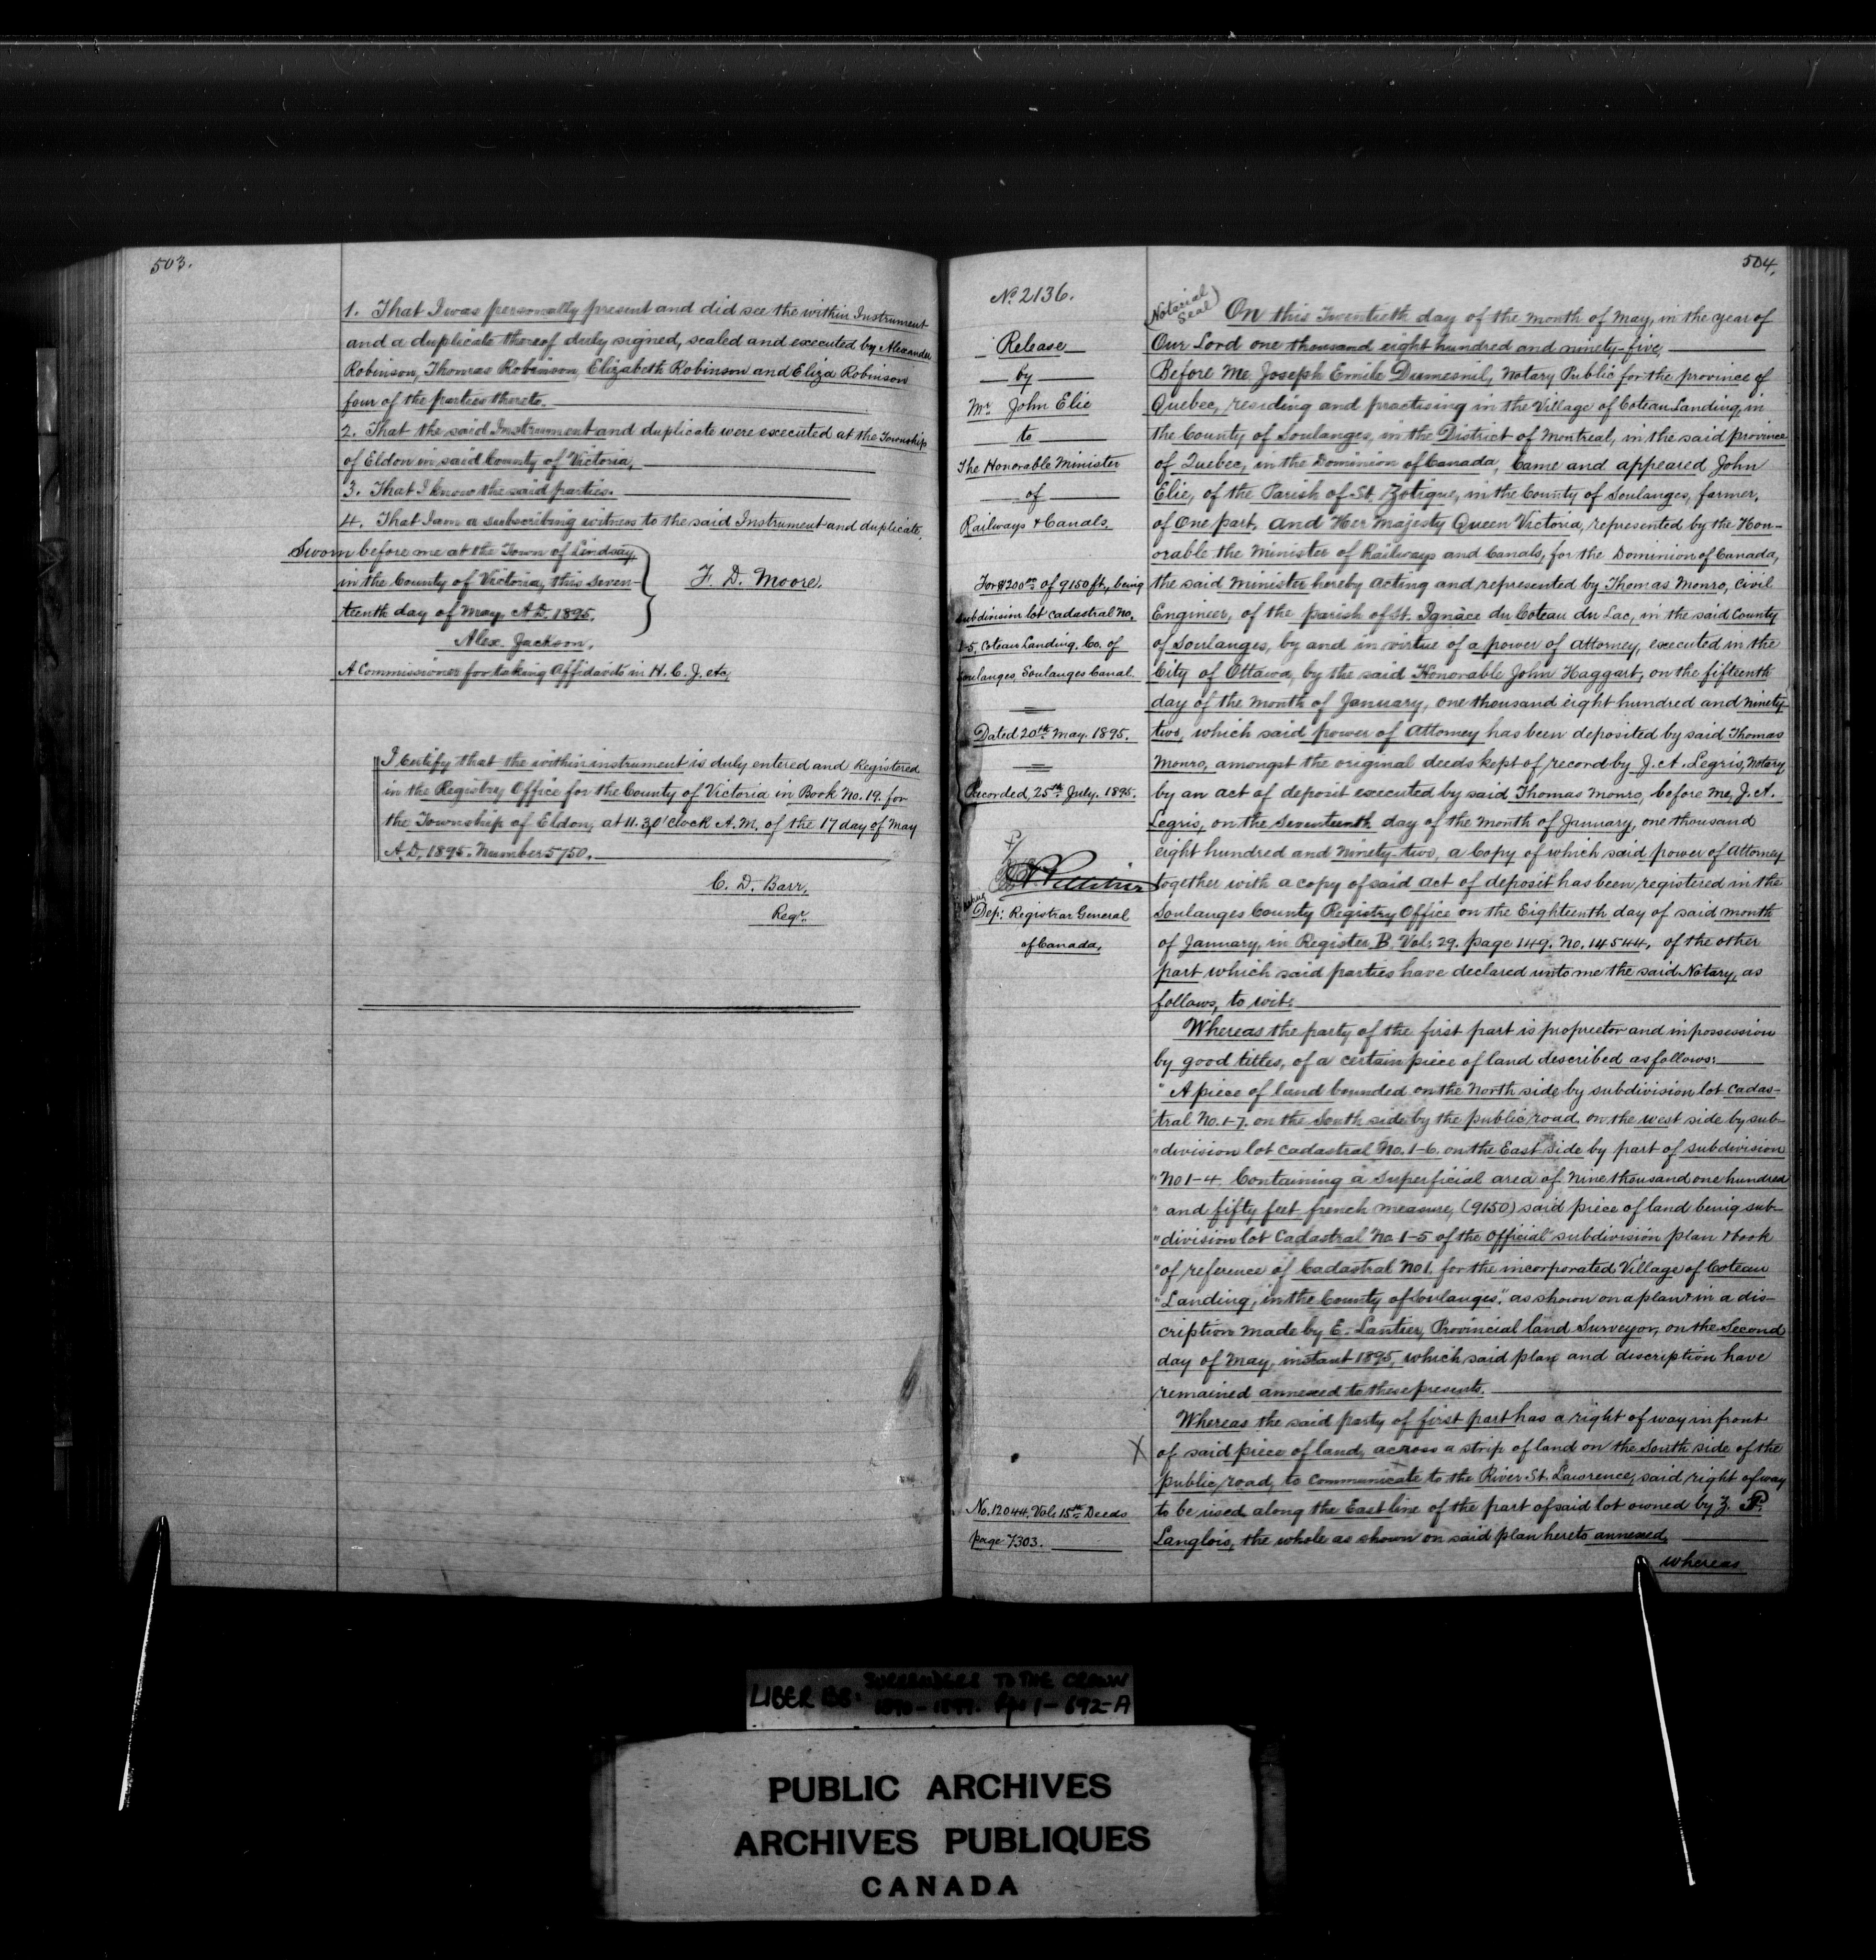 503.
1. That I was personally present and did see the within Instrument
and a duplicate thereof duly signed, sealed and executed by Alexander
Robinson, Thomas Robinson, Elizabeth Robinson and Eliza Robinson
four of the parties thereto.
2. That the said Instrument and duplicate were executed at the Township
of Eldon in said County of Victoria,
3. That I know the said parties.
4. That I am a subscribing witness to the said Instrument and duplicate.
Sworn before me at the Town of Lindsay
in the County of Victoria, this Seven-
teenth day of May A.D. 1895.
F. D. Moore.
Alex. Jackson.
A Commissioner for taking Affidavits in H. C. J. etc,
I Certify that the within instrument is duly entered and Registered
in the Registry Office for the County of Victoria in Book No. 19. for
the Township of Eldon, at 11.30 'Clock A.M. of the 17 day of May
A.D. 1895. Number 5750.
C. D. Barr,
Regr.
504.
No. 2136.
Release
by
Mr. John Elie
to
The Honorable Minister
of
Railways & Canals.
For $200.00 of 9150 ft., being
subdivision lot Cadastral No.
1-5. Coteau Landing. Co. of
Soulanges, Soulanges Canal.
Dated 20th May. 1895.
Recorded, 25th July. 1895.
Dep: Registrar General
of Canada,
No. 12044, Vol: 15th Deeds
page 7303.
(Notarial Seal)
On this Twentieth day of the month of May, in the year of
Our Lord one thousand eight hundred and ninety-five,
Before Me Joseph Emile Dumesnil, Notary Public for the province of
Quebec, residing and practising in the Village of Coteau Landing, in
the County of Soulanges, in the District of Montreal, in the said province
of Quebec, in the Dominion of Canada, Came and appeared John
Elie, of the Parish of St. Zotique, in the County of Soulanges, farmer,
of One part, and Her Majesty Queen Victoria, represented by the Hon-
orable the Minister of Railways and Canals, for the Dominion of Canada,
the said Minister hereby acting and represented by Thomas Monro, Civil
Engineer, of the parish of St. Ignace du Coteau du Lac, in the said County
of Soulanges, by and in virtue of a power of attorney, executed in the
City of Ottawa, by the said Honorable John Haggart, on the fifteenth
day of the month of January, one thousand eight hundred and ninety-
two, which said power of Attorney has been deposited by said Thomas
Monro, amongst the original deeds kept of record by J. A. Legris, Notary
by an act of deposit executed by said Thomas Monro, before me, J. A.
Legris, on the Seventeenth day of the month of January, one thousand
eight hundred and ninety-two, a Copy of which said power of Attorney
together with a copy of said act of deposit has been registered in the
Soulanges County Registry Office on the Eighteenth day of said month
of January, in Register B. Vol: 29. page 149. No. 14544, of the other
part which said parties have declared unto me the said Notary, as
follows, to wit:
Whereas the party of the first part is proprietor and in possession
by good titles, of a certain piece of land described as follows:
" A piece of land bounded on the North side by subdivision lot Cadas-
tral No. 1-7. on the South side by the public road, on the west side by sub-
" division lot Cadastral No. 1-6. on the East side by part of subdivision
" No 1-4. Containing a superficial area of Nine thousand one hundred
" and fifty feet french measure, (9150) said piece of land being sub-
" division lot Cadastral No. 1-5 of the Official subdivision plan & book
" of reference of Cadastral No 1. for the incorporated Village of Coteau
" Landing, in the County of Soulanges", as shown on a plan & in a dis-
cription made by E. Lantier, Provincial land Surveyor, on the Second
day of May, instant 1895, which said plan and discription have
remained annexed to these presents.
Whereas the said party of first part has a right of way in front
X of said piece of land, across a strip of land on the South side of the
public road, to Communicate to the River St. Lawrence, said right of way
to be used along the East line of the part of said lot owned by Z. P.
Langlois, the whole as shown on said plan hereto annexed,
whereas
LIBER BB: SURRENDERS TO THE CROWN
1890-1899. 1-692-A
PUBLIC ARCHIVES
ARCHIVES PUBLIQUES
CANADA